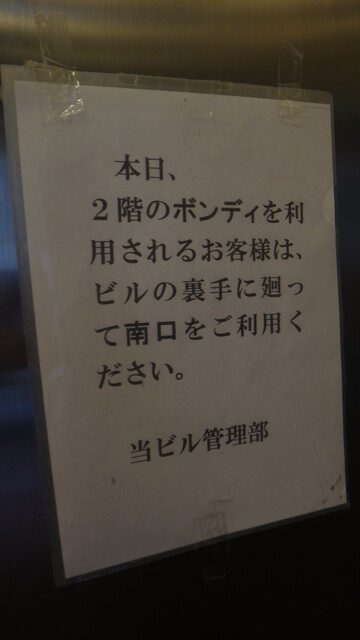 本日、
２階のボンディを利
用されるお客様は、
ビルの裏手に廻っ
て南口をご利用く
ださい。
当ビル管理部